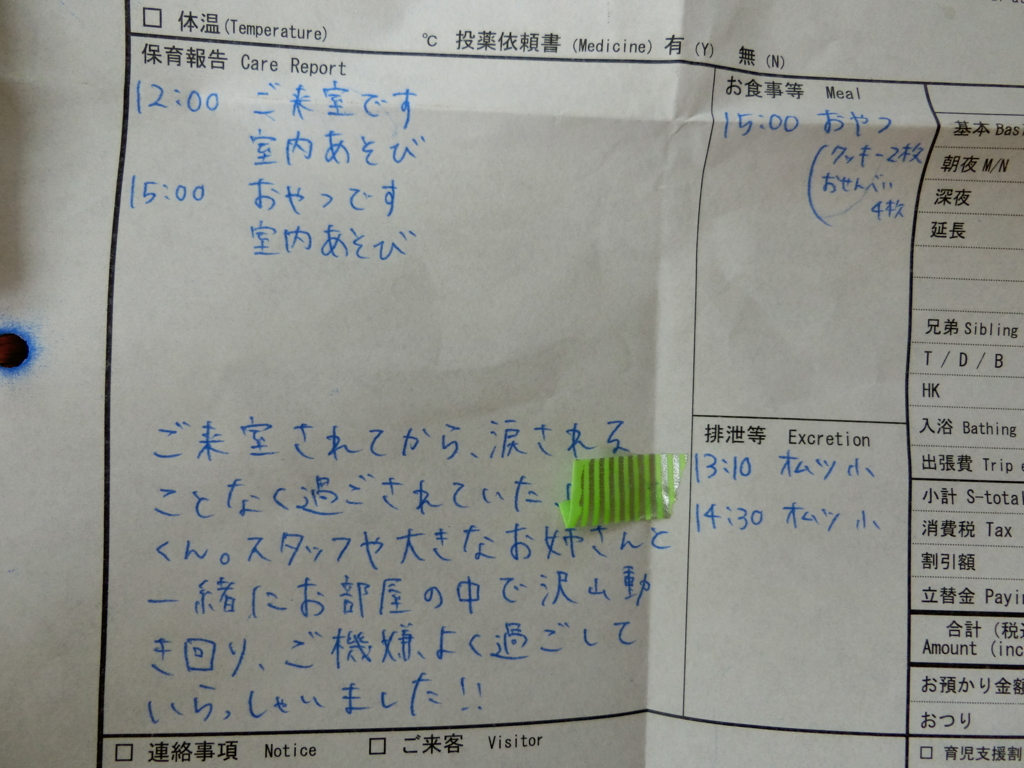 □ 体温(Temperature) ℃ 投薬依頼書 (Medicine) 有 (Y) 無 (N)
保育報告 Care Report
12:00 ご来室です
室内あそび
15:00 おやつです
室内あそび
ご来室されてから、涙される
ことなく過ごされていた、
くん。スタッフや大きなお姉さんと
一緒にお部屋の中で沢山動
き回り、ご機嫌よく過ごして
いらっしゃいました!!
お食事等 Meal
15:00 おやつ
(クッキー2枚
おせんべい
4枚
排泄等 Excretion
13:10 オムツ 小
14:30 オムツ 小
基本
朝夜 M/N
深夜
延長
兄弟 Sibling
T / D / B
HK
入浴 Bathing
出張費 Trip
小計
消費税 Tax
割引額
立替金
合計
Amount
お預かり金額
おつり
□ 育児支援割
□ 連絡事項 Notice □ ご来客 Visitor